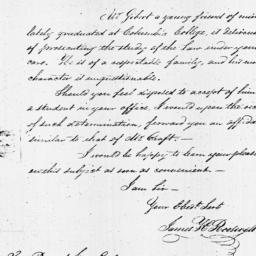 Mr Gibert a young friend of mine
lately graduated at Columbia College, is desirous
of prosecuting the study of the Law under your
care. He is of a respectable family, and his mo
character is unquestionable.
Should you feel disposed to accept of him
a student in your office, I would upon the rec
of such determination, forward you an affida
similar to that of Mr Craft.
I would be happy to learn your pleasu
on this subject as soon as convenient.
I am Sir
Your Obedt Servt
James H. Roosevelt